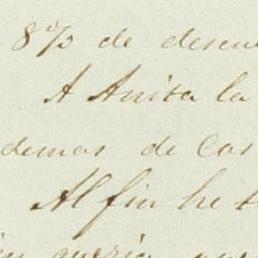 8% de descue
A Anita la
demas de las
Al fin he t
queria